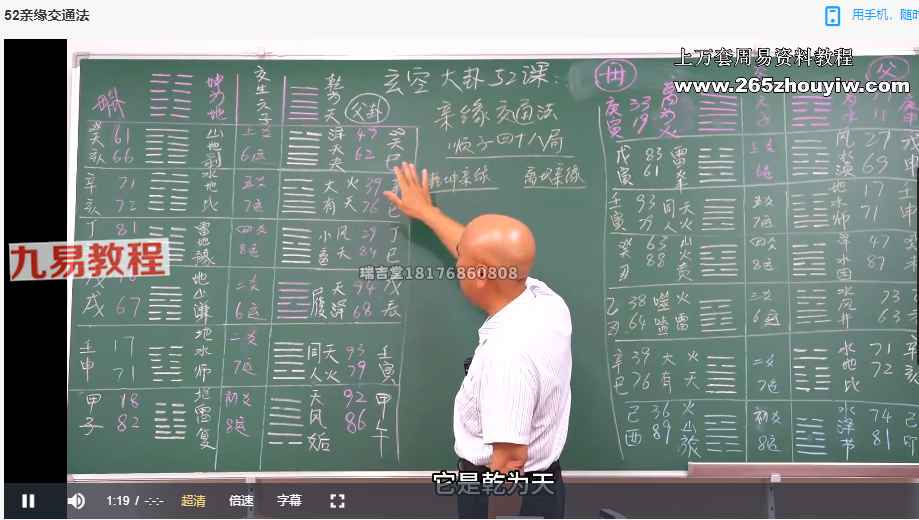 52亲缘交通法
用手机，随时
上万套周易资料教程
www.265zhouyiw.com
玄空大卦52课:
亲缘交通法
顺子四十八局
父卦
母
父
坤为地
乾为天
癸 61
亥 66
山地剥
上爻
6运
泽天夬
43
62
癸巳
辛 71
亥 72
水地比
五爻
7运
火天
大有
丁 81
雷地豫
四爻
8运
小风
畜天
67
戌
地山谦
二爻
6运
天泽
履
94
68
戊辰
壬 17
申 71
地水师
二爻
7运
同天
人火
93
79
壬寅
甲 18
子 82
地雷复
初爻
8运
天风姤
92
86
甲午
庚 33
寅 19
离为火
戊 83
寅 61
雷火丰
上爻
6运
风水涣
27
69
壬 93 同天
寅 79 人火
五爻
7运
地水师
17
71
癸 63
丑 88
四爻
8运
泽水困
47
87
乙 38 噬火
丑 64 嗑雷
三爻
6运
水风井
73
63
辛 39 大火
巳 76 有天
二爻
7运
水地比
71
72
己 36
酉 89
火山旅
初爻
8运
水泽节
74
81
九易教程
瑞吉堂18176860808
它是乾为天
1:19 / -:-
超清
倍速
字幕